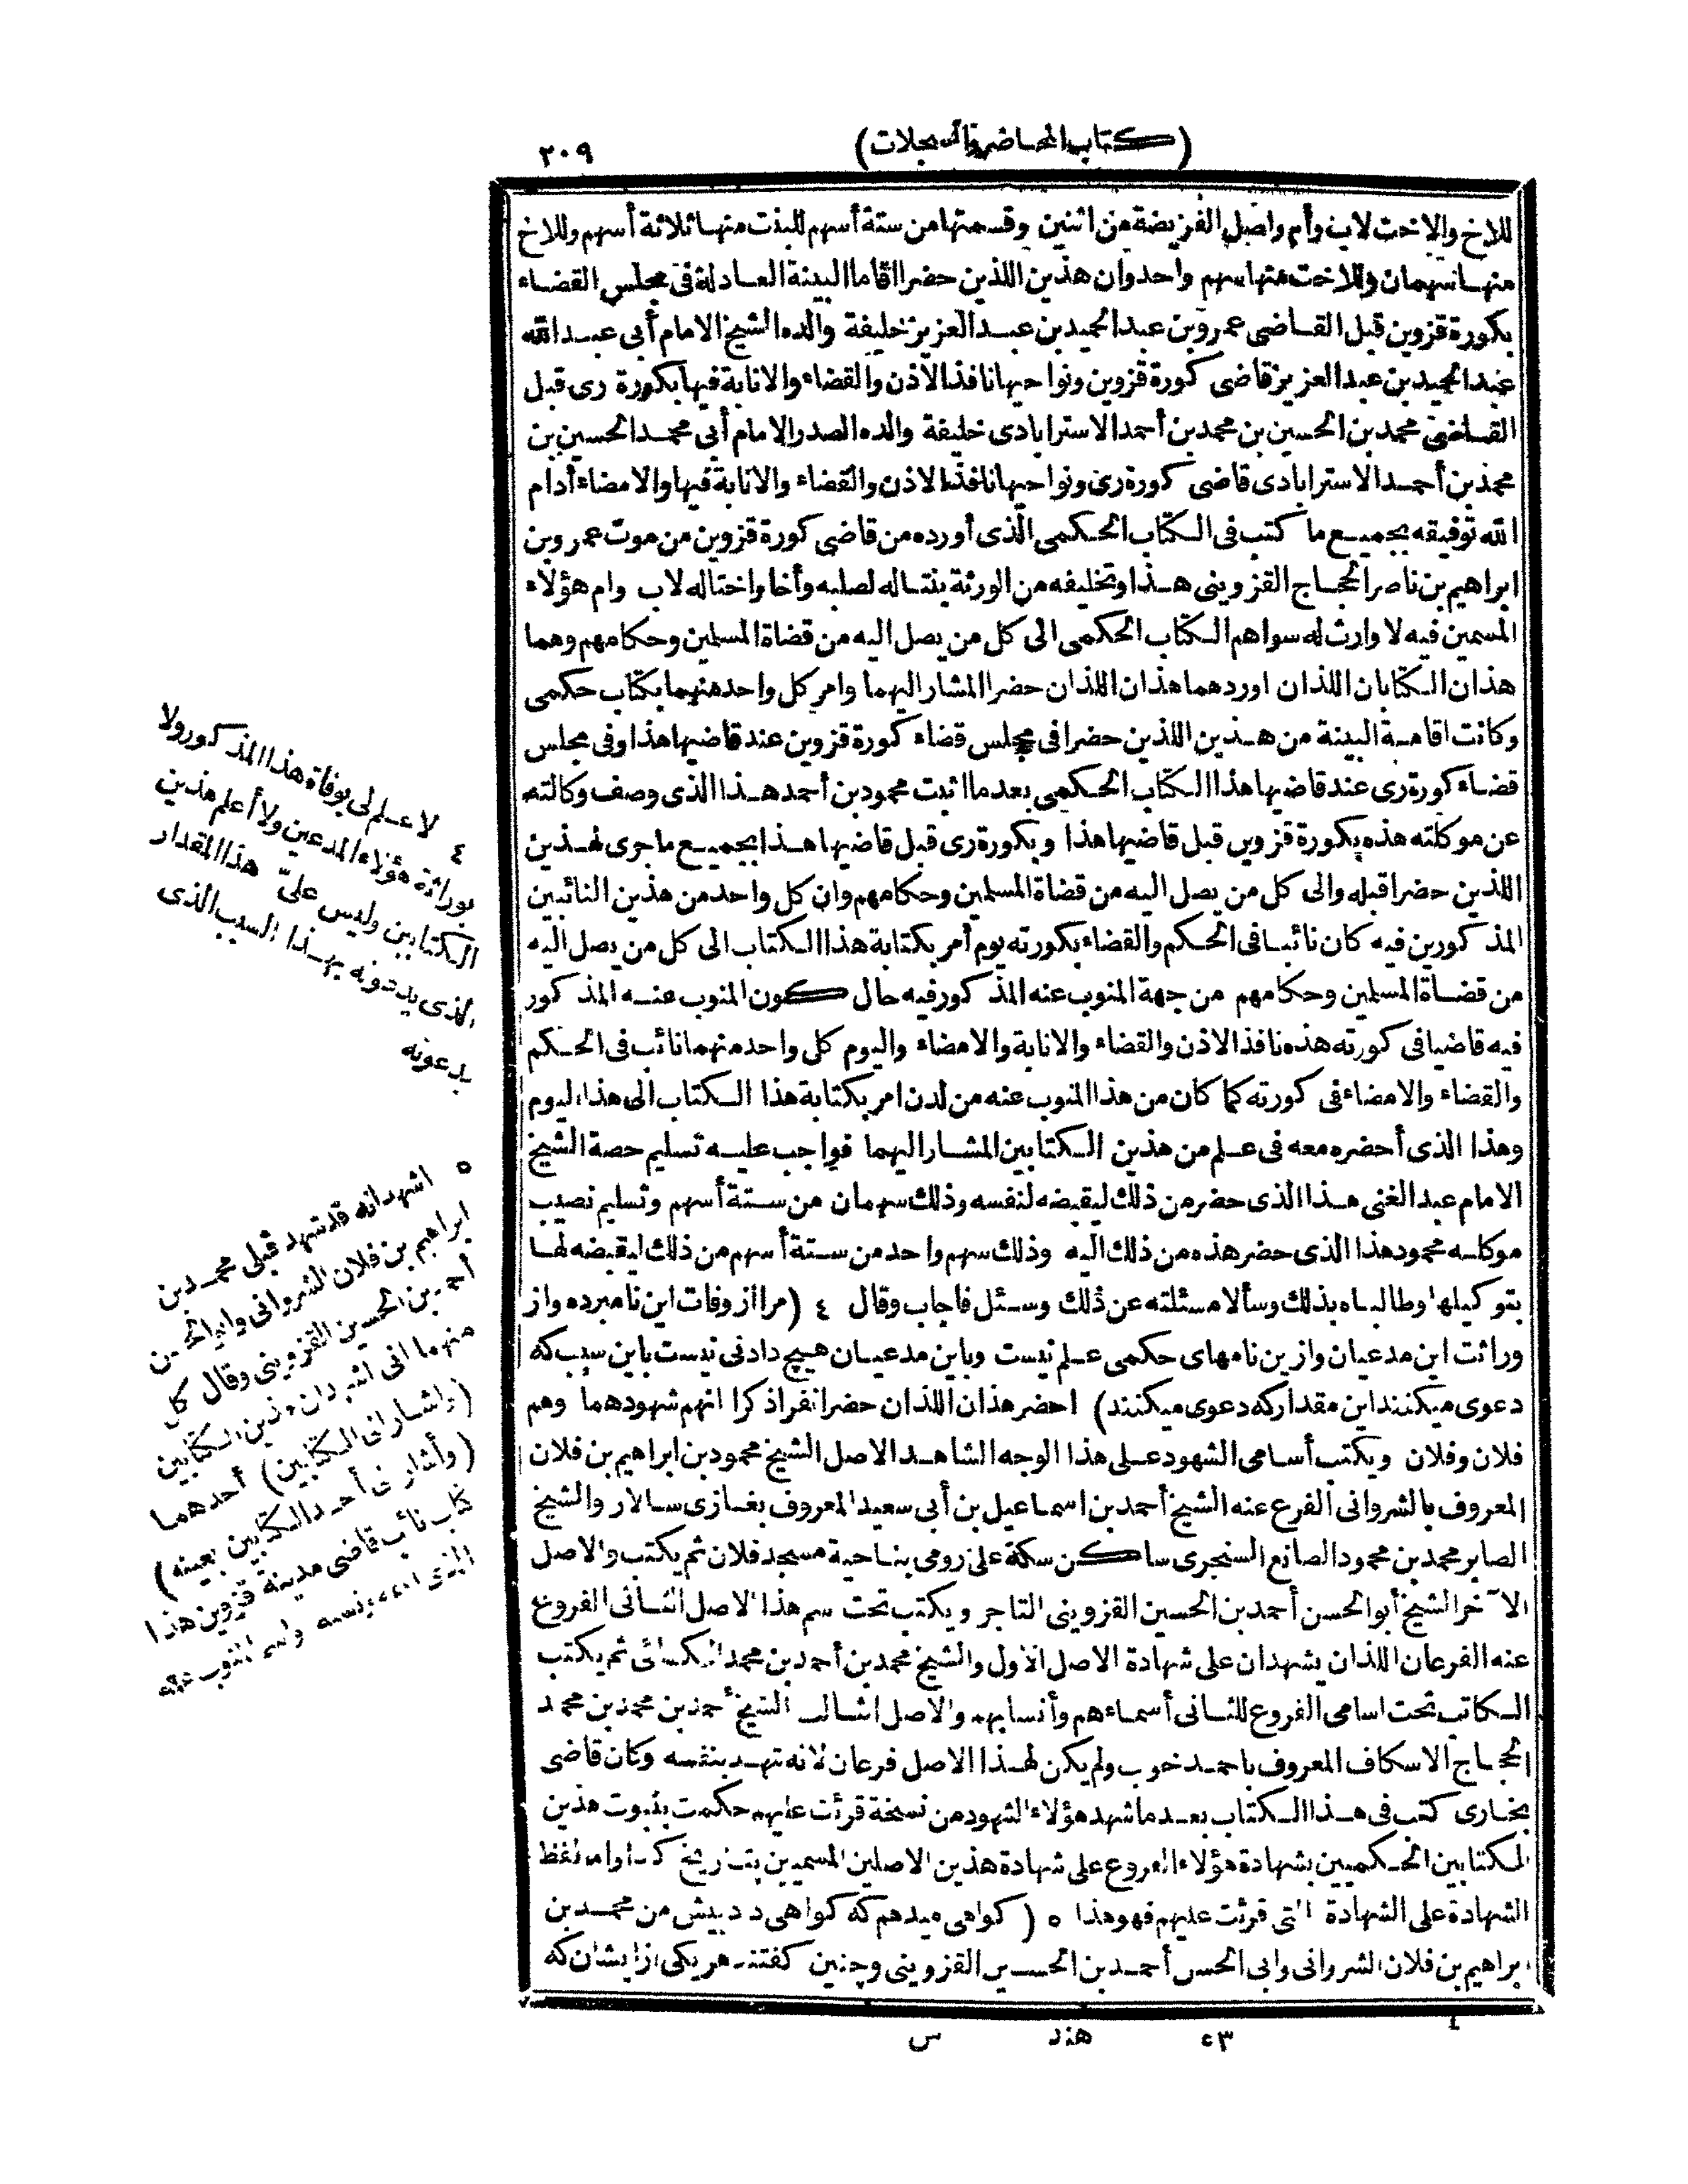 (كتاب المحاضر والسجلات)
٢٠٩
للاخ والاخت لاب وأم واصل الفريضة من اثنين وقسمتها من ستة أسهم للبنت منها ثلاثة أسهم وللاخ
منها سهمان وللاخت منها سهم واحد وان هذين اللذين حضرا اقاما البينة العادلة فى مجلس القضاء
بكورة قزوين قبل القاضى عمرو بن عبد الحميد بن عبد العزيز خليفة والده الشيخ الامام أبى عبد الله
عبد الحميد بن عبد العزيز قاضى كورة قزوين ونواحيها نافذ الاذن والقضاء والانابة فيها بكورة رى قبل
القاضى محمد بن الحسين بن محمد بن أحمد الاسترابادى خليفة والده الصدر الامام أبى محمد الحسين بن
محمد بن أحمد الاسترابادى قاضى كورة رى ونواحيها نافذ الاذن والقضاء والانابة فيها والامضاء أدام
الله توفيقه بجميع ما كتب فى الكتاب الحكمى الذى أورده من قاضى كورة قزوين من موت عمرو بن
ابراهيم بن ناصر الحجاج القزوينى هذا وتخليفه من الورثة بنتا له لصلبه وأخا واختا له لاب وام هؤلاء
المسمين فيه لا وارث له سواهم الكتاب الحكمى الى كل من يصل اليه من قضاة المسلمين وحكامهم وهما
هذان الكتابان اللذان اوردهما هذان اللذان حضرا المشار اليهما وامر كل واحد منهما بكتاب حكمى
وكانت اقامة البينة من هذين اللذين حضرا فى مجلس قضاء كورة قزوين عند قاضيها هذا وفى مجلس
قضاء كورة رى عند قاضيها هذا الكتاب الحكمى بعد ما اثبت محمود بن أحمد هذا الذى وصف وكالته
عن موكلته هذه بكورة قزوين قبل قاضيها هذا وبكورة رى قبل قاضيها هذا بجميع ما جرى لهذين
اللذين حضرا قبله والى كل من يصل اليه من قضاة المسلمين وحكامهم وان كل واحد من هذين النائبين
المذكورين فيه كان نائبا فى الحكم والقضاء بكورته يوم أمر بكتابة هذا الكتاب الى كل من يصل اليه
من قضاة المسلمين وحكامهم من جهة المنوب عنه المذكور فيه حال كون المنوب عنه المذكور
فيه قاضيا فى كورته هذه نافذ الاذن والقضاء والانابة والامضاء واليوم كل واحد منهما نائب فى الحكم
والقضاء والامضاء فى كورته كما كان من هذا المنوب عنه من لدن امر بكتابة هذا الكتاب الى هذا اليوم
وهذا الذى أحضره معه فى علم من هذين الكتابين المشار اليهما فواجب عليه تسليم حصة الشيخ
الامام عبد الغنى هذا الذى حضر من ذلك ليقبضه لنفسه وذلك سهمان من ستة أسهم وتسليم نصيب
موكلة محمود هذا الذى حضر هذه من ذلك اليه وذلك سهم واحد من ستة أسهم من ذلك ليقبضه لها
بتوكيلها وطالباه بذلك وسألا مسئلته عن ذلك وسئل فاجاب وقال ٤ (مرا از وفات اين نامبرده واز
وراثت اين مدعيان وازين نامهاى حكمى علم نيست وباين مدعيان هيچ دادنى نيست باين سبب كه
دعوى ميكنند اين مقدار كه دعوى ميكنند) احضر هذان اللذان حضرا نفرا ذكرا انهم شهودهما وهم
فلان وفلان ويكتب أسامى الشهود على هذا الوجه الشاهد الاصل الشيخ محمود بن ابراهيم بن فلان
المعروف بالشروانى الفرع عنه الشيخ أحمد بن اسماعيل بن أبى سعيد المعروف بغازى سالار والشيخ
الصابر محمد بن محمود الصانع السنجرى ساكن سكة على رومى بناحية مسجد فلان ثم يكتب والاصل
الآخر الشيخ أبو الحسن أحمد بن الحسين القزوينى التاجر ويكتب تحت اسم هذا الاصل الثانى الفروع
عنه الفرعان اللذان يشهدان على شهادة الاصل الاول والشيخ محمد بن أحمد بن محمد الكسائى ثم يكتب
الكاتب تحت اسامى الفروع للثانى أسماءهم وأنسابهم والاصل الثالث الشيخ أحمد بن محمد بن محمد
الحجاج الاسكاف المعروف باحمد خوب ولم يكن لهذا الاصل فرعان لانه شهد بنفسه وكان قاضى
بخارى كتب فى هذا الكتاب بعد ما شهد هؤلاء الشهود من نسخة قرئت عليهم حكمت بثبوت هذين
الكتابين الحكميين بشهادة هؤلاء الفروع على شهادة هذين الاصلين المسميين بتاريخ كذا وامالفظ
الشهادة على الشهادة التى قرئت عليهم فهو هذا ٥ (كواهى ميدهم كه كواهى داد بيش من محمد بن
ابراهيم بن فلان الشروانى وابى الحسن أحمد بن الحسين القزوينى وچنين كفتند هر يكى از ايشان كه
٤ لا علم لى بوفاة هذا المذكور ولا
بوراثة هؤلاء المدعين ولا أعلم هذين
الكتابين وليس علىّ هذا المقدار
الذى يدعونه بهذا السبب الذى
يدعونه
٥ اشهد انه قد شهد قبلى محمد بن
ابراهيم بن فلان الشروانى وابو الحسن
أحمد بن الحسين القزوينى وقال كل
منهما انى اشهد ان هذين الكتابين
(واشار الى الكتابين) أحدهما
(وأشار الى أحد الكتابين بعينه)
كتاب نائب قاضى مدينة قزوين هذا
الذى نسبه واسم المنوب عنه
٤٣ هند س